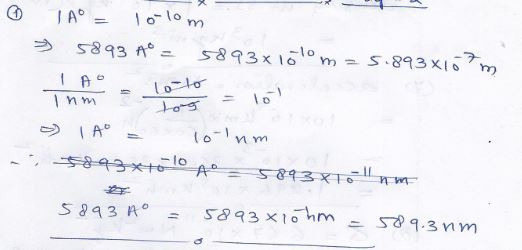 ① 1 A° = 10⁻¹⁰ m
⇒ 5893 A° = 5893×10⁻¹⁰ m = 5.893×10⁻⁷ m
1 A° / 1 nm = 10⁻¹⁰ / 10⁻⁹ = 10⁻¹
⇒ 1 A° = 10⁻¹ nm
∴ 5893×10⁻¹⁰ A° = 5893×10⁻¹¹ nm
5893 A° = 5893×10⁻¹nm = 589.3 nm